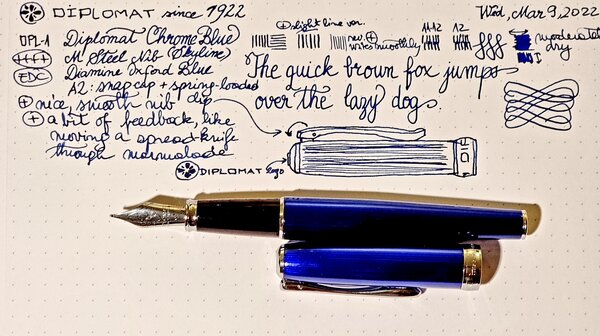 DIPLOMAT since 1922
⊕ slight line var.
Wed, Mar 9, 2022
DPL-1 Diplomat "Chrome Blue"
M Steel Nib (Skyline)
EDC Diamine Oxford Blue
A2: snap clip + spring-loaded
⊕ nice, smooth nib
⊕ a bit of feedback, like
moving a spread-knife
through marmalade
smoothly
A1-A2
A2
moderate
dry
The quick brown fox jumps
over the lazy dog.
DIPLOMAT logo